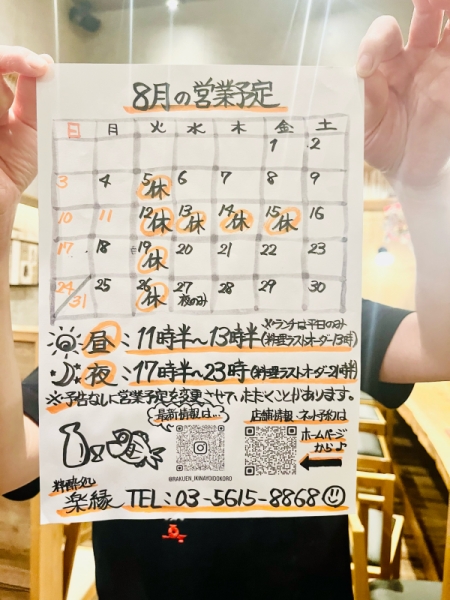 8月の営業予定
日 月 火 水 木 金 土
1 2
3 4 5休 6 7 8 9
10 11 12休 13休 14休 15休 16
17 18 19休 20 21 22 23
24 31 25 26休 27 夜のみ 28 29 30
※ランチは平日のみ
昼:11時半〜13時半(料理ラストオーダー13時)
夜:17時半〜23時(料理ラストオーダー21時半)
※予告なしに営業予定を変更させていただくことがあります。
最新情報は…
店舗情報・ネット予約は
ホームページ
から♪
@RAKUEN_HINAYOIDOKORO
楽縁 TEL:03-5615-8868